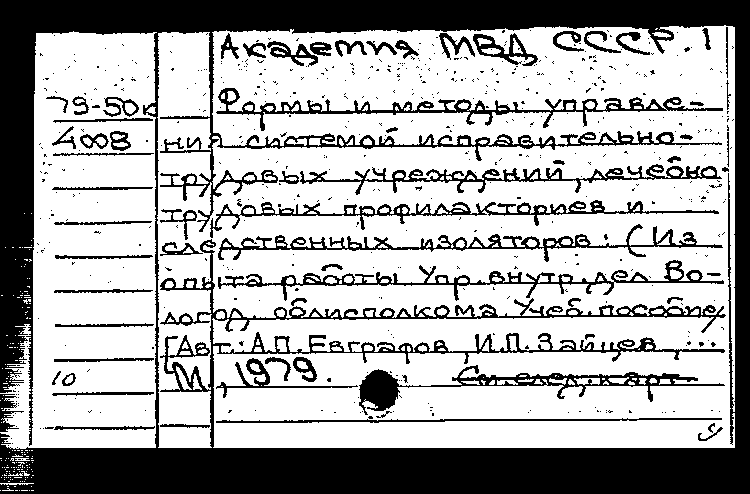 Академия МВД СССР. 1
79-50к Формы и методы управле-
4008 ния системой исправительно-
трудовых учреждений, лечебно-
трудовых профилакториев и
следственных изоляторов: (Из
опыта работы Упр. внутр. дел Во-
логод. облисполкома. Учеб. пособие/
[Авт.: А.П. Евграфов, И.П. Зайцев, ...
10 М., 1979. См. след. карт.